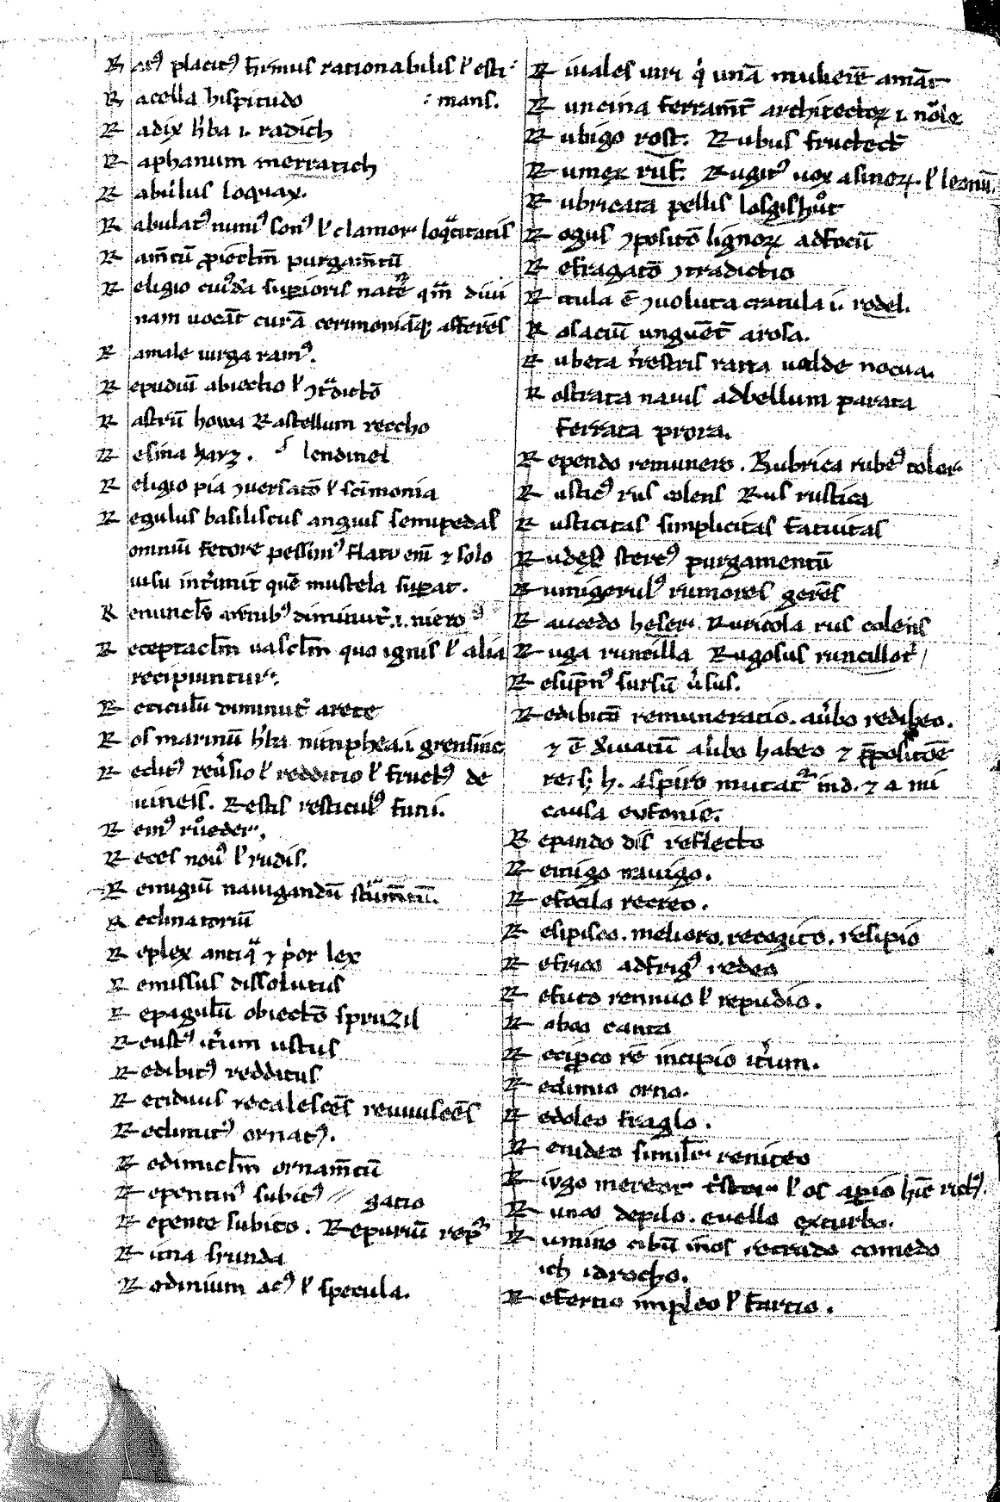 R atꝰ placitꝰ firmus rationabilis ł esti
R acella hispitudo : mans.
R adix h̓ba .i. radich
R aphanum merratich
R abulus loquax.
R abulatꝰ nimiꝰ sonꝰ ł clamor loq̈citatis
R am̅tū ꝓiectm̅ purgam̅tū
R eligio cuiꝰda̅ supioris nat̅e qm̅ diui
nam uocāt curā cerimoniāqꝫ affere̅s
R amale uirga ramꝰ.
R epudiū abiectio ł ꝯt̓dictō
R astrū howa Rastellum reccho
R esina harz. lendinel
R eligio pia ꝯuersatō ł sci̅monia
R egulus basiliscus anguis semipedal
omniū fetore pessimꝰ flatu em̅ ⁊ solo
uisu int̓imit quē mustela sup̱at.
R enuncłs rēnibꝰ diminut̓ .i. niero
R eceptaclm̅ uasclm̅ quo ignis ł alia
recipiuntur.
R eticulū diminut̓ a rete
R os marinū h̓ba nimphea .i. grensinc
R editꝰ reu̓sio ł redditio ł fructꝰ de
uineis. Restis resticulꝰ funi.
R emꝰ ruͦeder.
R eces nouꝰ ł rudis.
R emigiū nauigandū
R eclinatoriū
R eplex antiq̈ ⁊ p̓or lex
R emissus dissolutus
R epagulū obiectō spruzil
R eustꝰ it̓um ustus
R edibitꝰ redditus
R ecidiuus recalescēs reuiuiscēs
R edimitꝰ ornatꝰ.
R edimiclm̅ ornam̅tū
R epentinꝰ subitꝰ // gatio
R epente subito. Repuriū rep̱
R ima srunda
R edinium acꝰ ł specula.
R iuales uiri q̓ unā mulierē amāt
R uncina ferram̅t architectoꝝ .i. noͤle
R ubigo rost. Rubus fructect̓
R umex ruf. Rugitꝰ uox asinoꝝ. ł leonū
R ubricata pellis losgishuͦt
R ogus ꝯpositō lignoꝝ ad focū
R efragatō ꝯtradictio
R otula ē ꝯuoluta cratula .i. rodel.
R osaciū unguēt a rosa.
R ubeta t̓restris rana ualde nocua.
R ostrata nauis ad bellum parata
ferrata prora.
R ependo remunero. Rubrica rubeꝰ color
R usticꝰ rus colens Rus rustica
R usticitas simplicitas fatuitas
R udes stercꝰ purgamentū
R umigerulꝰ rumores gerēs
R aucedo heseri Ruricola rus colens
R uga runcilla Rugosus runcillot̓
R esupinꝰ sursū ũsus.
R edibitō remuneratio. au̓bo redibeo.
⁊ ē d̓iuatiū au̓bo habeo ⁊ p̅positōe
re. sꝫ h. aspiro mutat̓ in d. ⁊ a in i
causa eufonie.
R epando dis reflecto
R emigo nauigo.
R efocilo recreo.
R esipisco. melioro. recogito. resipio
R efrico ad frigꝰ redeo
R efuto rennuo ł repudio.
R aboo canto
R ecip̱o rē incipio it̓um.
R edimio orno.
R edoleo fraglo.
R enideo simil̓r reniteo
R ingo mereor t̓stor ł os apio hīc rictꝰ.
R unco depilo. euello exturbo.
R umino cibū in os retrado comedo
ich idrocho.
R efertio impleo ł farcio.